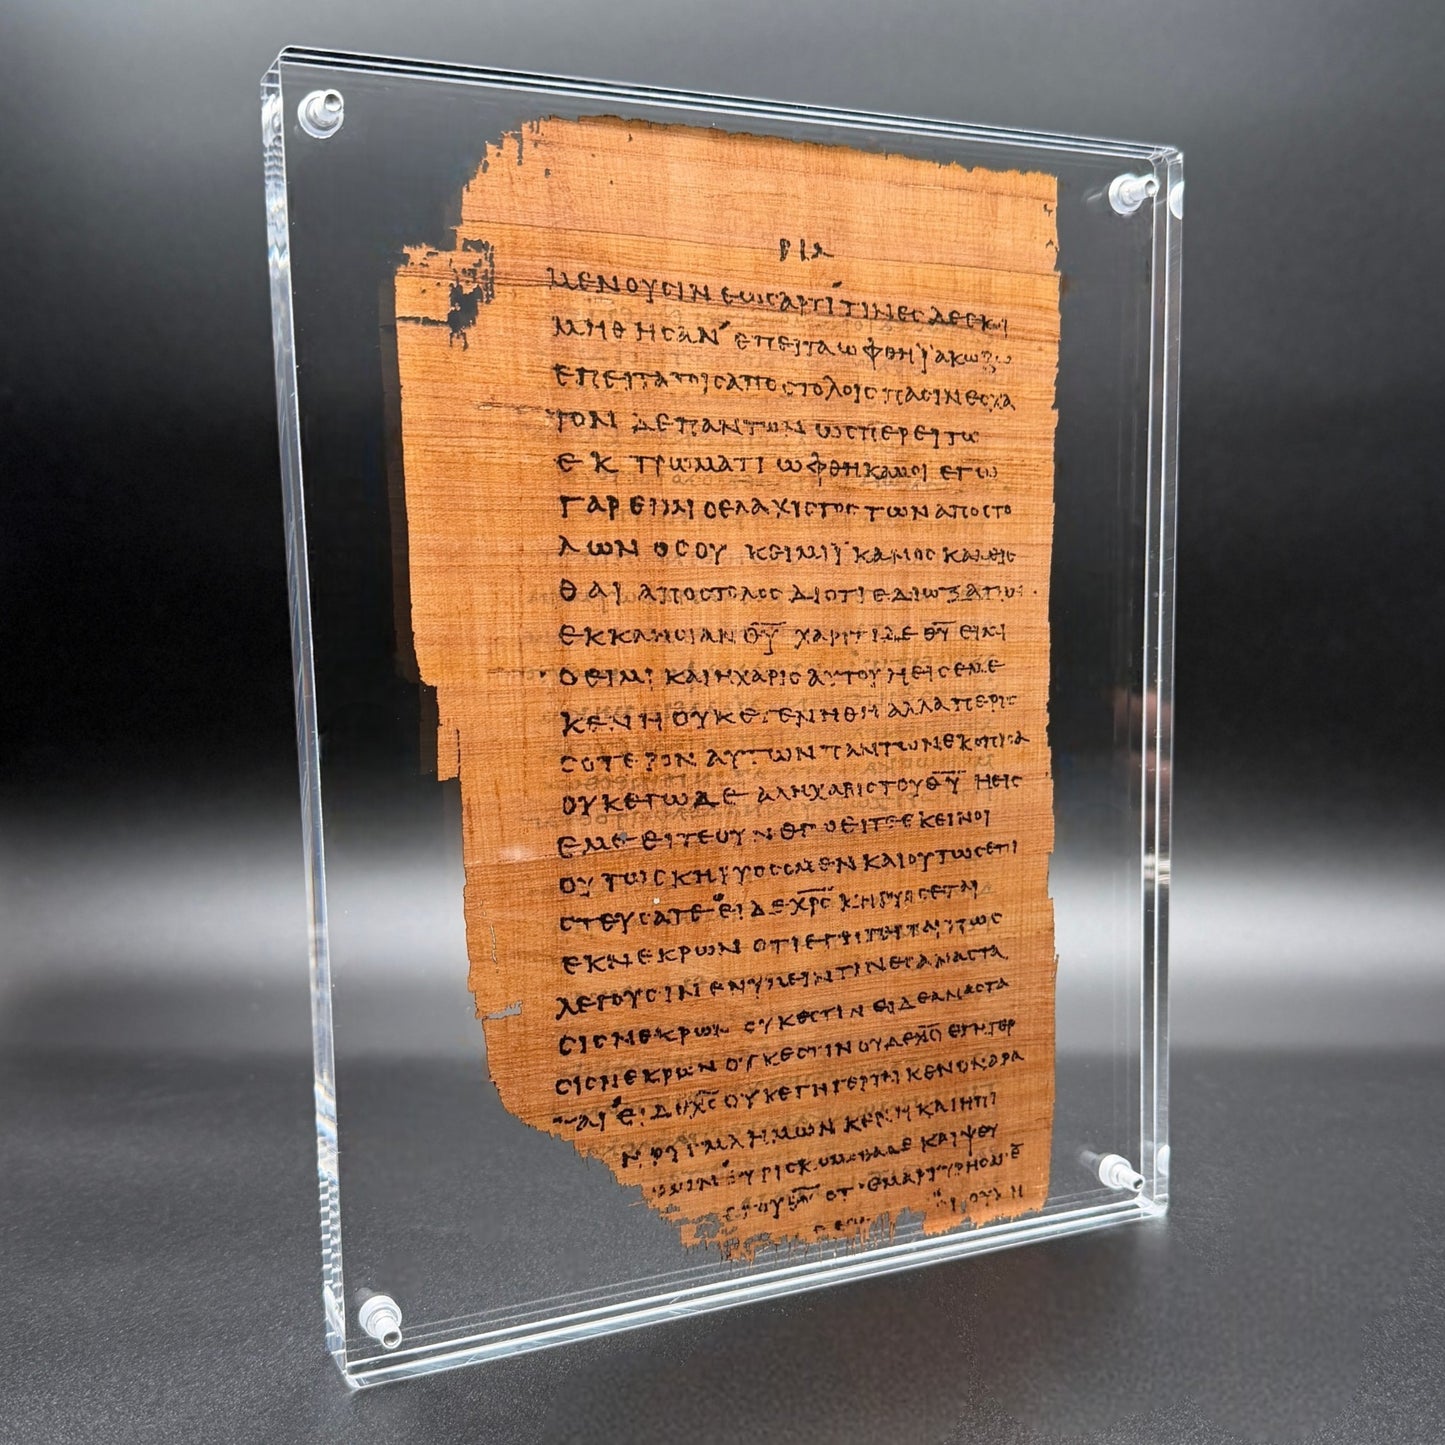 ΡΙΑ
ΜΕΝΟΥϹΙΝ ΕΩϹΑΡΤΙ ΤΙΝΕϹ ΔΕ ΕΚΟΙ
ΜΗΘΗϹΑΝ ΕΠΕΙΤΑ ΩΦΘΗ ΪΑΚΩΒΩ
ΕΠΕΙΤΑ ΤΟΙϹ ΑΠΟϹΤΟΛΟΙϹ ΠΑϹΙΝ ΕϹΧΑ
ΤΟΝ ΔΕ ΠΑΝΤΩΝ ΩϹΠΕΡΕΙ ΤΩ
ΕΚΤΡΩΜΑΤΙ ΩΦΘΗ ΚΑΜΟΙ ΕΓΩ
ΓΑΡ ΕΙΜΙ Ο ΕΛΑΧΙϹΤΟϹ ΤΩΝ ΑΠΟϹΤΟ
ΛΩΝ ΟϹ ΟΥΚ ΕΙΜΙ ΪΚΑΝΟϹ ΚΑΛΕΙϹ
ΘΑΙ ΑΠΟϹΤΟΛΟϹ ΔΙΟΤΙ ΕΔΙΩΞΑ ΤΗΝ
ΕΚΚΛΗϹΙΑΝ Θ̅Υ̅ ΧΑΡΙΤΙ ΔΕ Θ̅Υ̅ ΕΙΜΙ
Ο ΕΙΜΙ ΚΑΙ Η ΧΑΡΙϹ ΑΥΤΟΥ Η ΕΙϹ ΕΜΕ
ΚΕΝΗ ΟΥΚ ΕΓΕΝΗΘΗ ΑΛΛΑ ΠΕΡΙϹ
ϹΟΤΕΡΟΝ ΑΥΤΩΝ ΠΑΝΤΩΝ ΕΚΟΠΙΑϹΑ
ΟΥΚ ΕΓΩ ΔΕ ΑΛΛ Η ΧΑΡΙϹ ΤΟΥ Θ̅Υ̅ Η ΕΙϹ
ΕΜΕ ΕΙΤΕ ΟΥΝ ΕΓΩ ΕΙΤΕ ΕΚΕΙΝΟΙ
ΟΥΤΩϹ ΚΗΡΥϹϹΟΜΕΝ ΚΑΙ ΟΥΤΩϹ ΕΠΙ
ϹΤΕΥϹΑΤΕ ΕΙ ΔΕ Χ̅Ρ̅Ϲ̅ ΚΗΡΥϹϹΕΤΑΙ
ΕΚ ΝΕΚΡΩΝ ΟΤΙ ΕΓΗΓΕΡΤΑΙ ΠΩϹ
ΛΕΓΟΥϹΙΝ ΕΝ ΥΜΕΙΝ ΤΙΝΕϹ ΑΝΑϹΤΑ
ϹΙϹ ΝΕΚΡΩΝ ΟΥΚ ΕϹΤΙΝ ΕΙ ΔΕ ΑΝΑϹΤΑ
ϹΙϹ ΝΕΚΡΩΝ ΟΥΚ ΕϹΤΙΝ ΟΥΔΕ Χ̅Ρ̅Ϲ̅ ΕΓΗΓΕΡ
ΤΑΙ ΕΙ ΔΕ Χ̅Ρ̅Ϲ̅ ΟΥΚ ΕΓΗΓΕΡΤΑΙ ΚΕΝΟΝ ΑΡΑ
ΗΜΩΝ ΚΕΝΗ ΚΑΙ Η ΠΙ
ΕΥΡΙϹΚΟΜΕΘΑ ΔΕ ΚΑΙ ΨΕΥ
ΟΤΙ ΕΜΑΡΤΥΡΗϹΑΜΕ